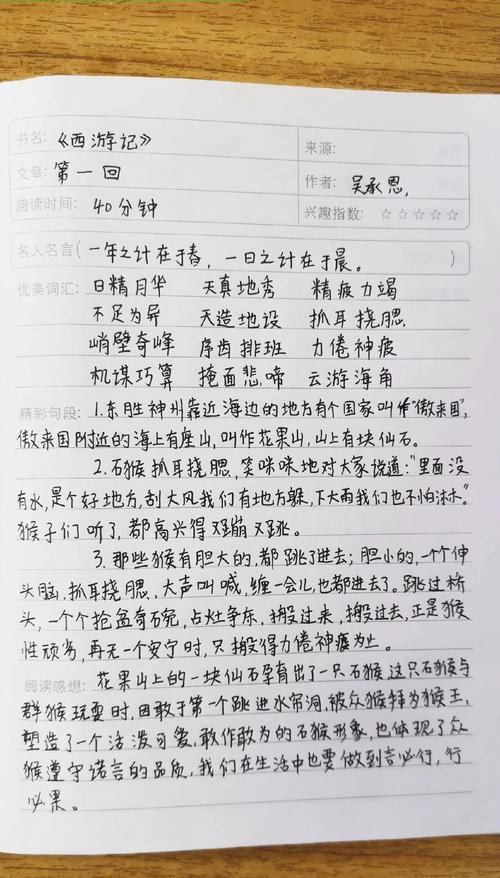 书名: 《西游记》
来源:
文章: 第一回
作者: 吴承恩,
阅读时间: 40分钟
兴趣指数: ☆☆☆☆☆
名人名言( 一年之计在于春，一日之计在于晨。 )
优美词汇: 日精月华 天真地秀 精疲力竭
不足为异 天造地设 抓耳挠腮
峭壁奇峰 序齿排班 力倦神疲
机谋巧算 掩面悲啼 云游海角
精彩句段: 1.东胜神州靠近海边的地方有个国家叫作"傲来国",
傲来国附近的海上有座山,叫作花果山,山上有块仙石。
2.石猴抓耳挠腮,笑咪咪地对大家说道:"里面没
有水,是个好地方,刮大风我们有地方躲,下大雨我们也不怕沐。"
猴子们听了,都高兴得又蹦又跳。
3.那些猴有胆大的,都跳了进去;胆小的,一个个伸
头脑,抓耳挠腮,大声叫喊,缠一会儿,也都进去了。跳过桥
头,一个个抢盆夺碗,占灶争床,搬过来,搬过去,正是猴
性顽劣,再无一个安宁时,只搬得力倦神疲为止。
阅读感想: 花果山上的一块仙石孕育出了一只石猴,这只石猴与
群猴玩耍时,因敢于第一个跳进水帘洞,被众猴拜为猴王,
塑造了一个活泼可爱,敢作敢为的石猴形象,也体现了众
猴遵守诺言的品质,我们在生活中也要做到言必行,行
必果。